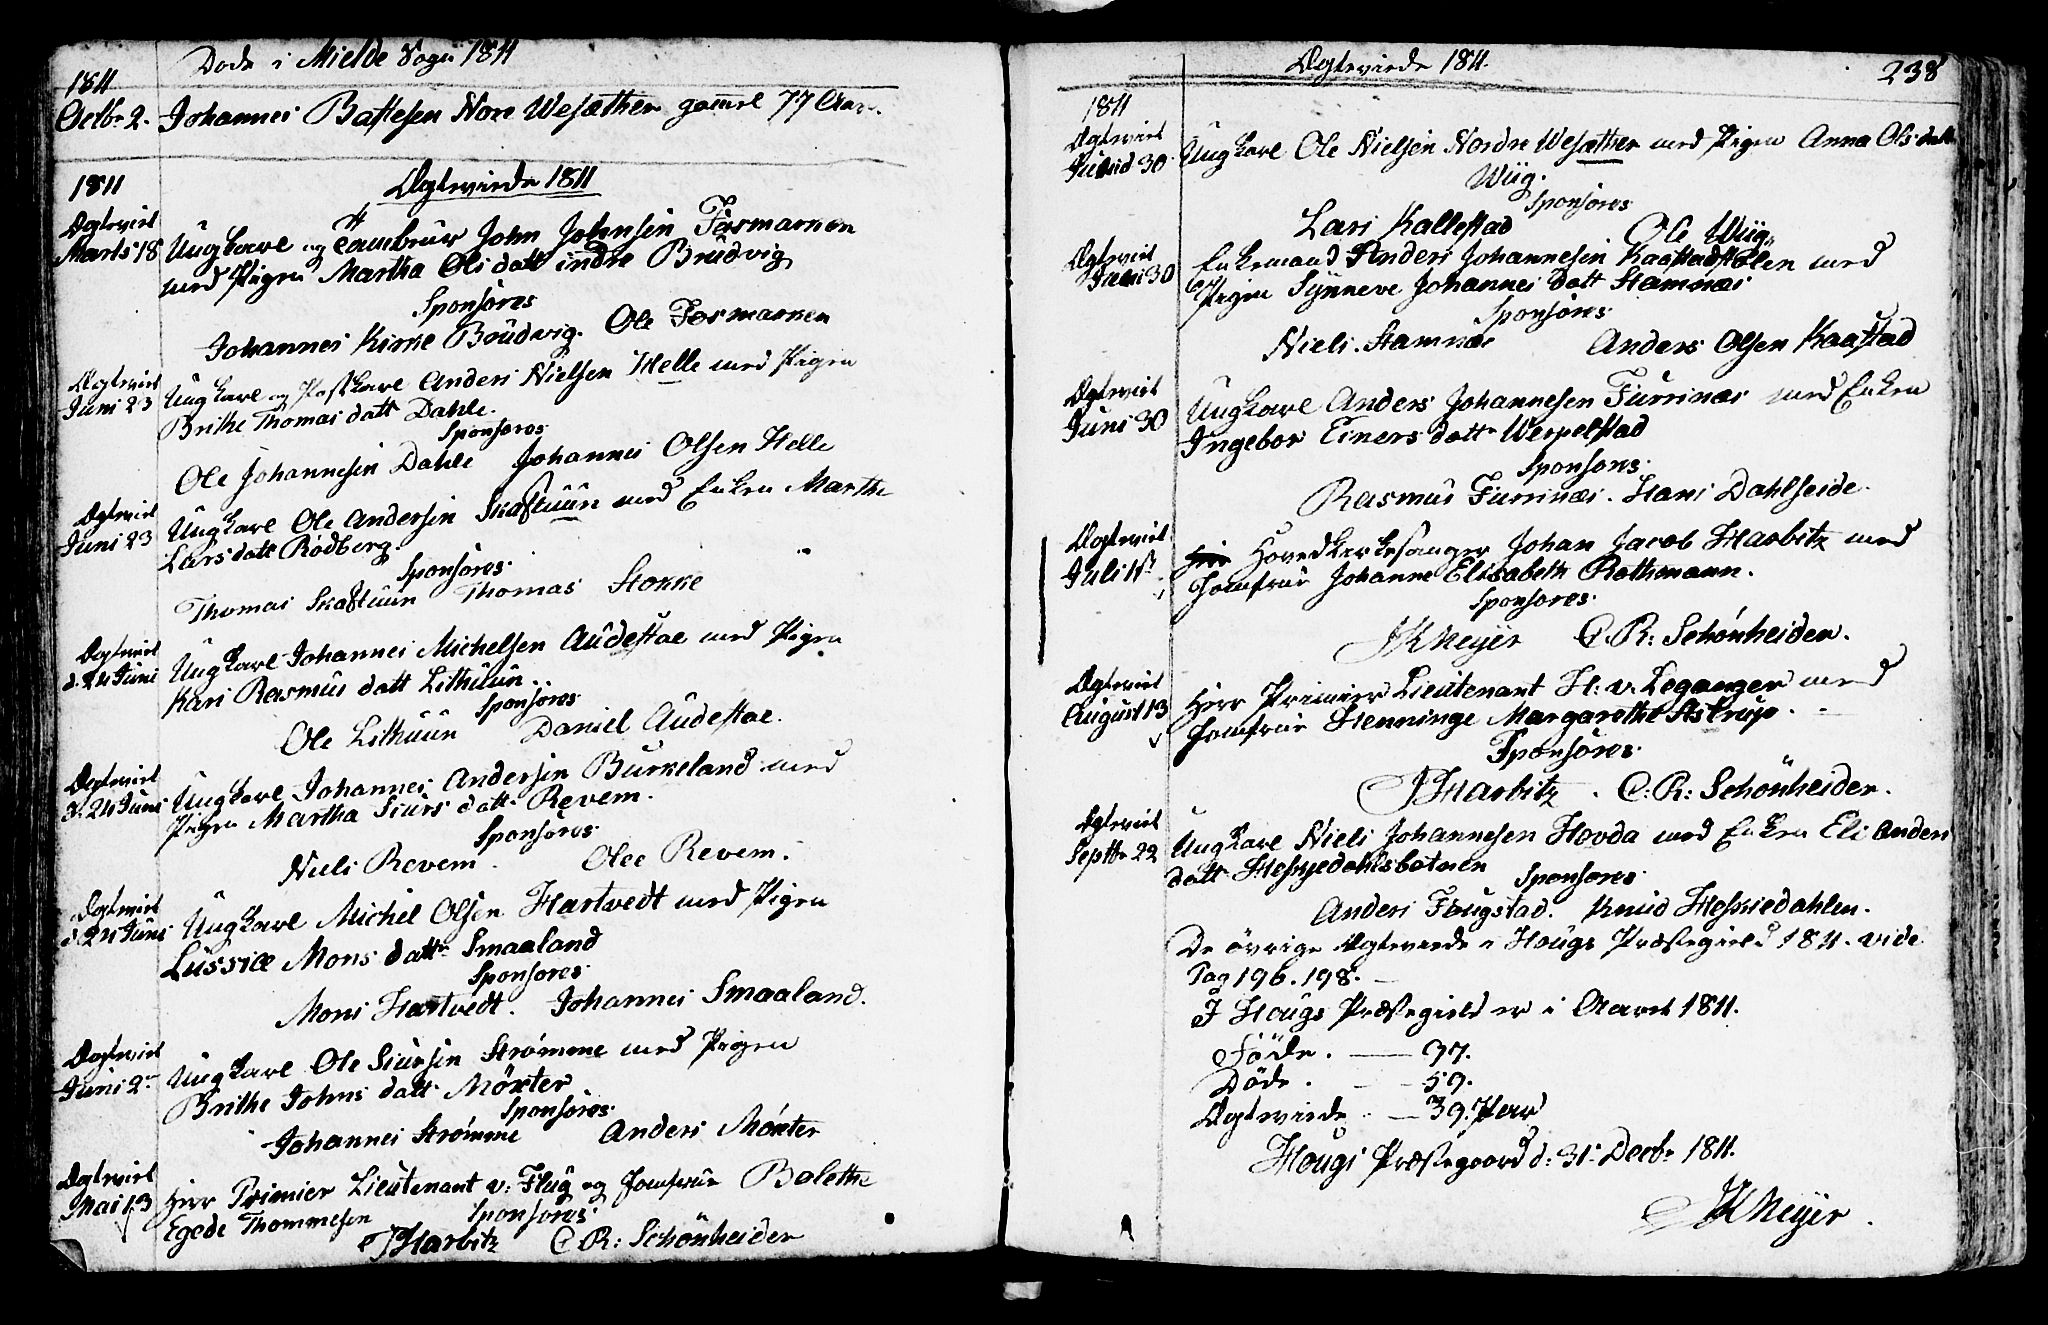 Døde i Mielde Sogn 1811
1811
Octbr 2. Johannes Battesen Nore Wesæther gamel 77 Aar.
1811
Ægteviede 1811
Ægteviet Marts 18 Ungkarl og Tambuur John Johnsen Fosmarken
med Pigen Martha Ols datt indre Brudvig
Sponsores
Johannes Kirke Brudvig. Ole Fosmarken
Ægteviet Juni 23 Ungkarl og Postkarl Anders Nielsen Helle med Pigen
Brithe Thomas datt Dahle.
Sponsores
Ole Johannesen Dahle Johannes Olsen Helle
Ægteviet Juni 23 Ungkarl Ole Andersen Skaftuun med Enken Marthe
Lars datt Rødberg.
Sponsores
Thomas Skaftuun Thomas Stokke
Ægteviet d. 24 Juni Ungkarl Johannes Michelsen Audestae med Pigen
Kari Rasmus datt Lithuun.
Sponsores
Ole Lithuun Daniel Audestae.
Ægteviet d. 24 Juni Ungkarl Johannes Andersen Burkeland med
Pigen Martha Siurs datt Revem.
Sponsores
Niels Revem. Olee Revem.
Ægteviet d 24 Juni Ungkarl Michel Olsen Hartvedt med Pigen
Lussiæ Mons datt Smaaland
Sponsores
Mons Hartvedt. Johannes Smaaland.
Ægteviet Juni 2 Ungkarl Ole Siursen Strømme med Pigen
Brithe Johns datt Møxter
Sponsores
Johannes Strømme Anders Møxter
Ægteviet Mai 13 Herr Primier Lieutenant v: Flug og Jomfrue Bolethe
Egede Thommesen Sponsores
JHarbitz C. R: Schönheider
Ægteviede 1811.
238
1811
Ægteviet Juni d 30 Ungkarl Ole Nielsen Nordre Wesæther med Pigen Anna Ols datt
Wiig.
Sponsores
Lars Kallestad Ole Wiig.
Ægteviet Juni 30 Enkemand Anders Johannesen Kaastadstølen med
Pigen Synneve Johannes datt Stamnæs
Sponsores
Niels Stamnæs Anders Olsen Kaastad
Ægteviet Juni 30 Ungkarl Anders Johannesen Furrinæs med Enken
Ingebor Einers datt Werpelstad
Sponsores
Rasmus Furrinæs. Hans Dahlseide.
Ægteviet Juli Herr Hovedkirkesanger Johan Jacob Harbitz med
Jomfrue Johanne Elisabeth Rothmann.
Sponsores
JKMeyer C. R: Schönheider.
Ægteviet August 13 Herr Primier Lieutenant H: v. Leganger med
Jomfrue Henninge Margarethe Astrup.
Sponsores
JHarbitz. C: R: Schönheider.
Ægteviet Septbr 22 Ungkarl Niels Johannesen Hovda med Enken Eli Anders
datt Heskjedahlsbotnen Sponsores
Anders Fougstad. Knud Heskiedahlen.
De øvrige Ægteviede i Hougs Præstegield 1811. vide
Pag 196. 198.
I Hougs Præstegield er i Aaret 1811.
Føde. — 37.
Døde. — 59.
Ægteviede — 39. Par
Hougs Præstegaard d: 31 Decbr 1811.
JKMeyer.